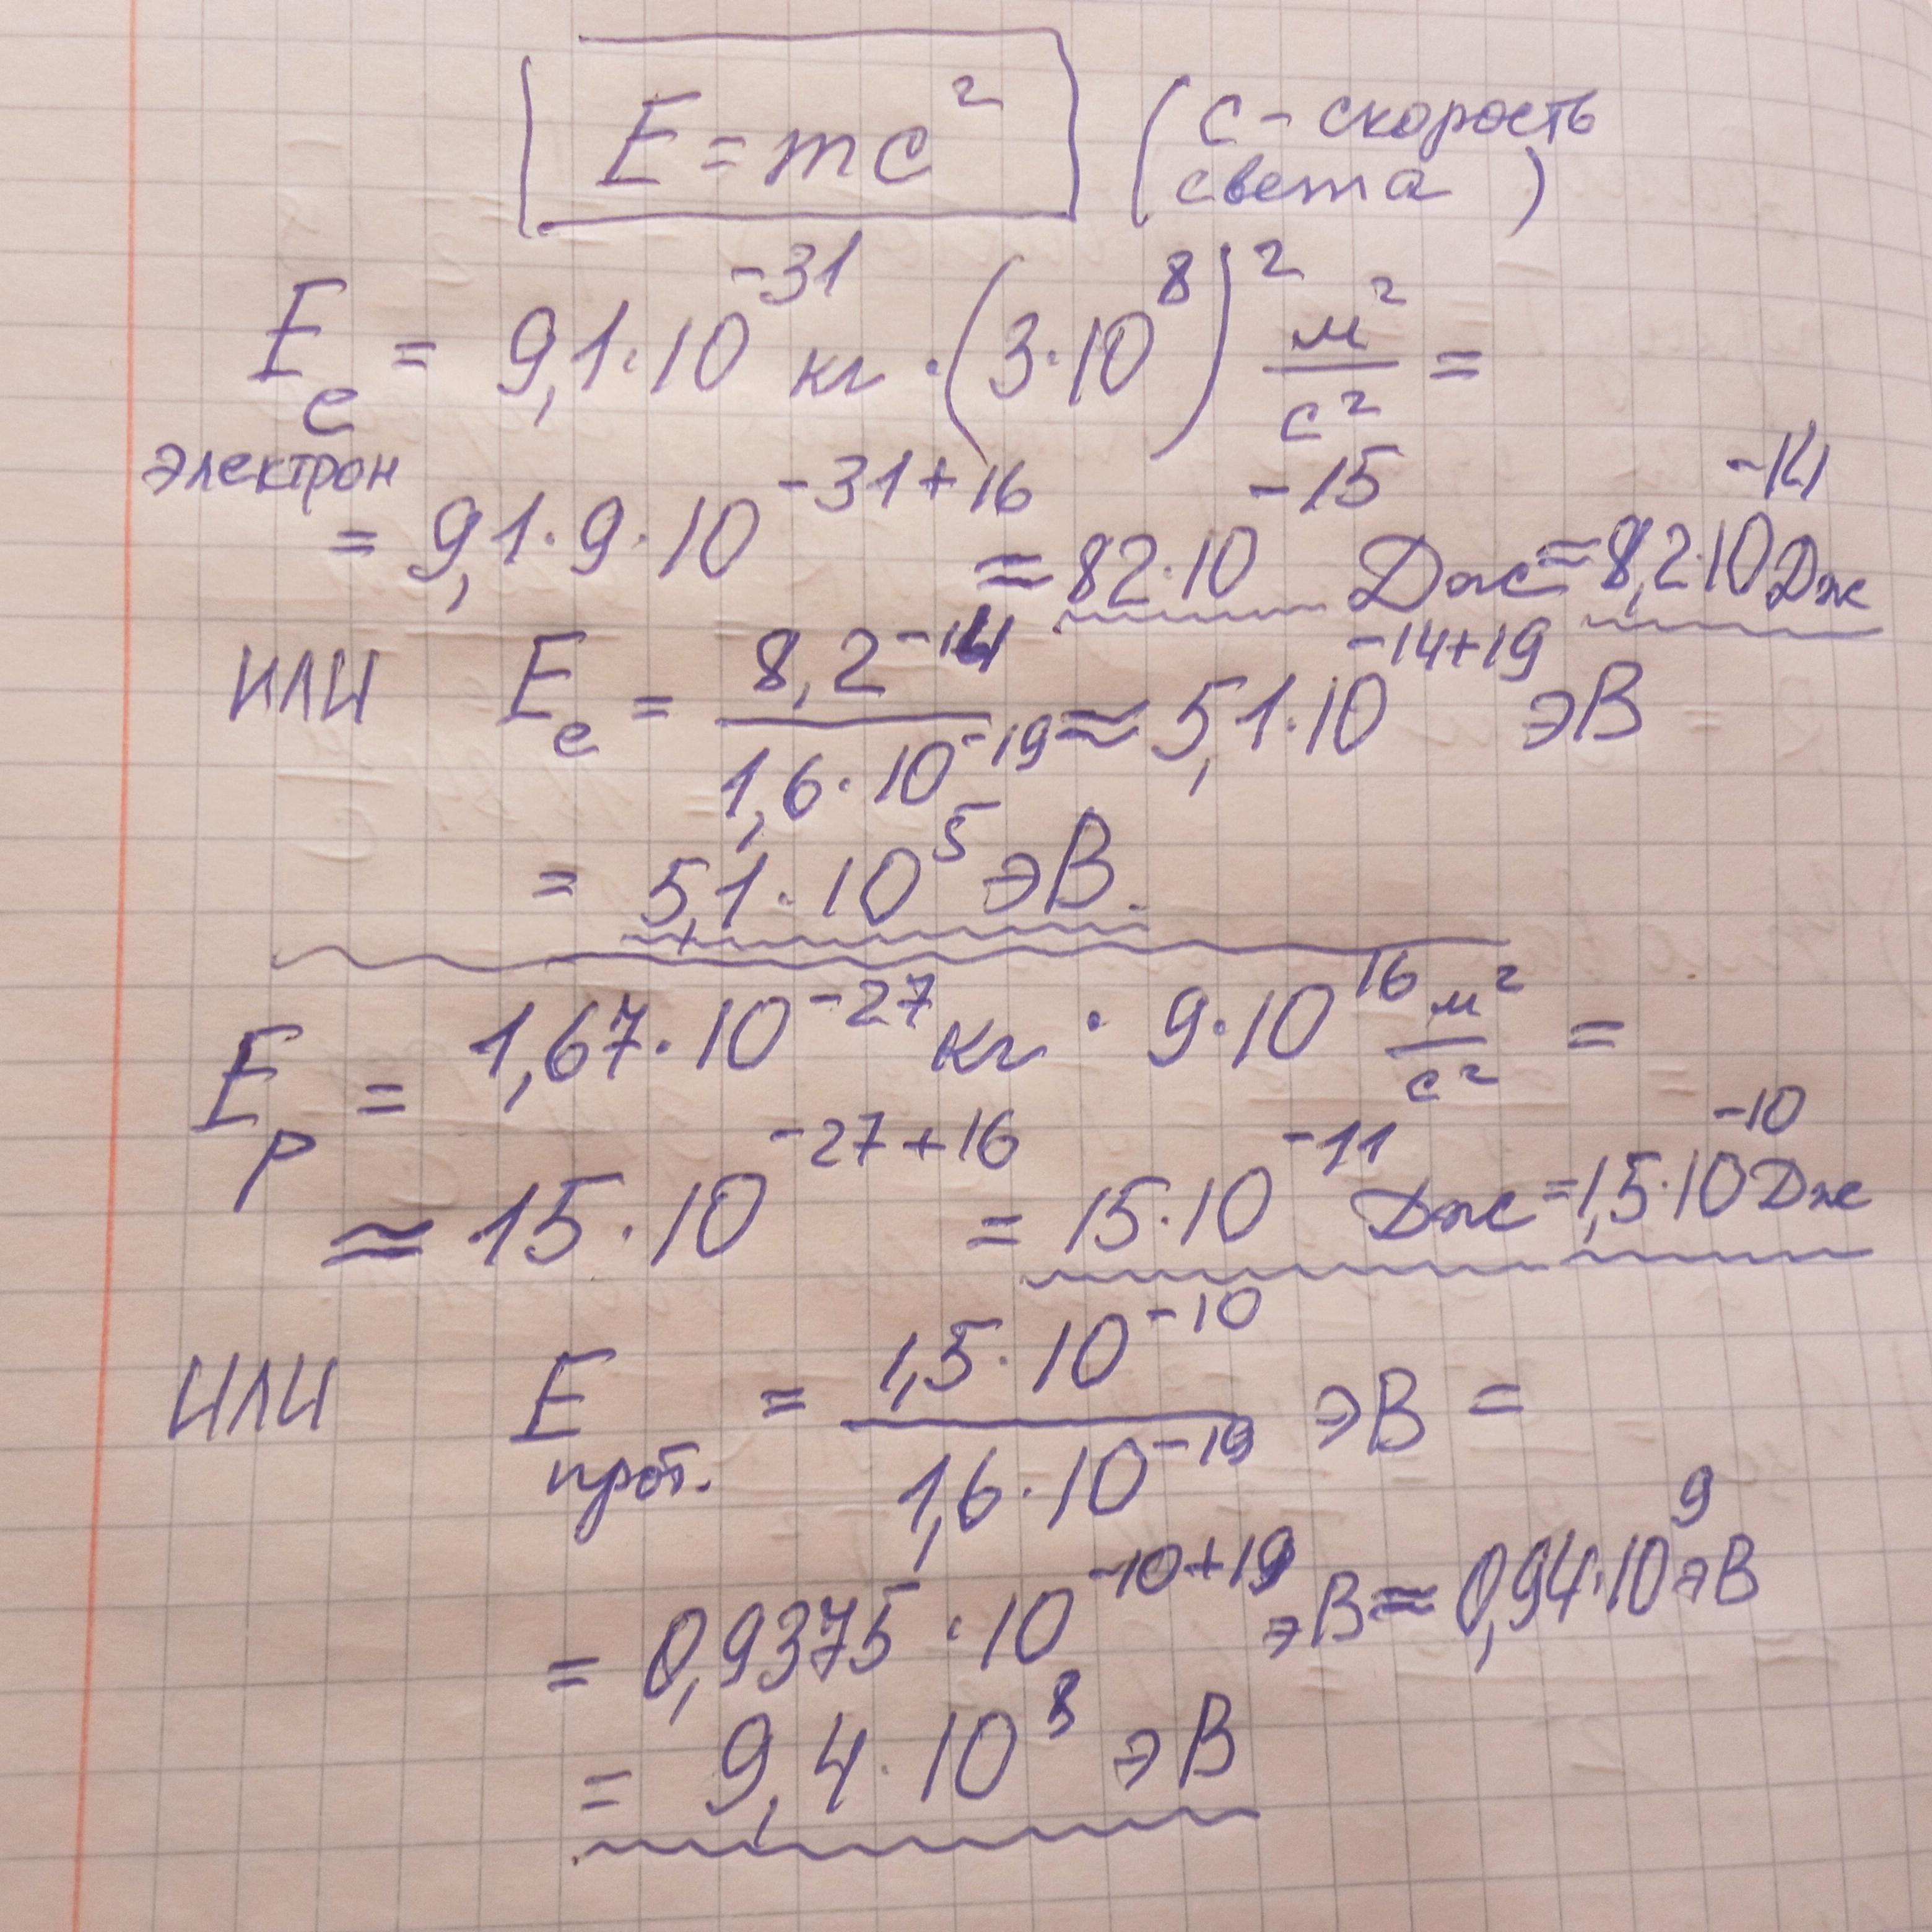 E = mc² (с - скорость
света)
E_e = 9,1·10⁻³¹ кг · (3·10⁸)² м²/с² =
электрон
= 9,1·9·10⁻³¹⁺¹⁶ ≈ 82·10⁻¹⁵ Дж = 8,2·10⁻¹⁴ Дж
ИЛИ E_e = 8,2⁻¹⁴/1,6·10⁻¹⁹ ≈ 5,1·10⁻¹⁴⁺¹⁹ эВ
= 5,1·10⁵ эВ.
E_p = 1,67·10⁻²⁷ кг · 9·10¹⁶ м²/с² =
≈ 15·10⁻²⁷⁺¹⁶ = 15·10⁻¹¹ Дж = 1,5·10⁻¹⁰ Дж
ИЛИ E прот. = 1,5·10⁻¹⁰/1,6·10⁻¹⁹ эВ =
= 0,9375·10⁻¹⁰⁺¹⁹ эВ ≈ 0,94·10⁹ эВ
= 9,4·10⁸ эВ